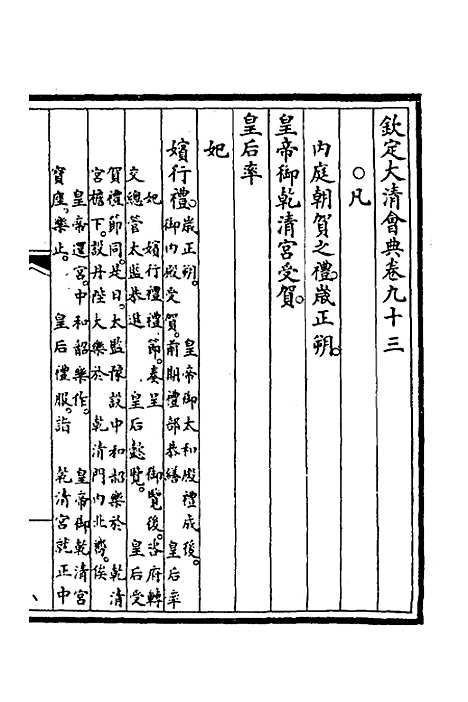 欽定大清會典卷九十三
○凡
內庭朝賀之禮歲正朔。
皇帝御乾清宮受賀。
皇后率
妃
嬪行禮。歲正朔。皇帝御太和殿禮成後。
御內殿受賀。前期禮部恭繕皇后率
妃嬪行禮禮節。奏呈御覽後。咨府轉
交總管太監恭進皇后懿覽。皇后受
賀禮節同。是日。太監豫設中和韶樂於乾清
宮檐下。設丹陛大樂於乾清門內北嚮。俟
皇帝還宮。中和韶樂作。皇帝御乾清宮
寶座。樂止。皇后禮服。詣乾清宮就正中